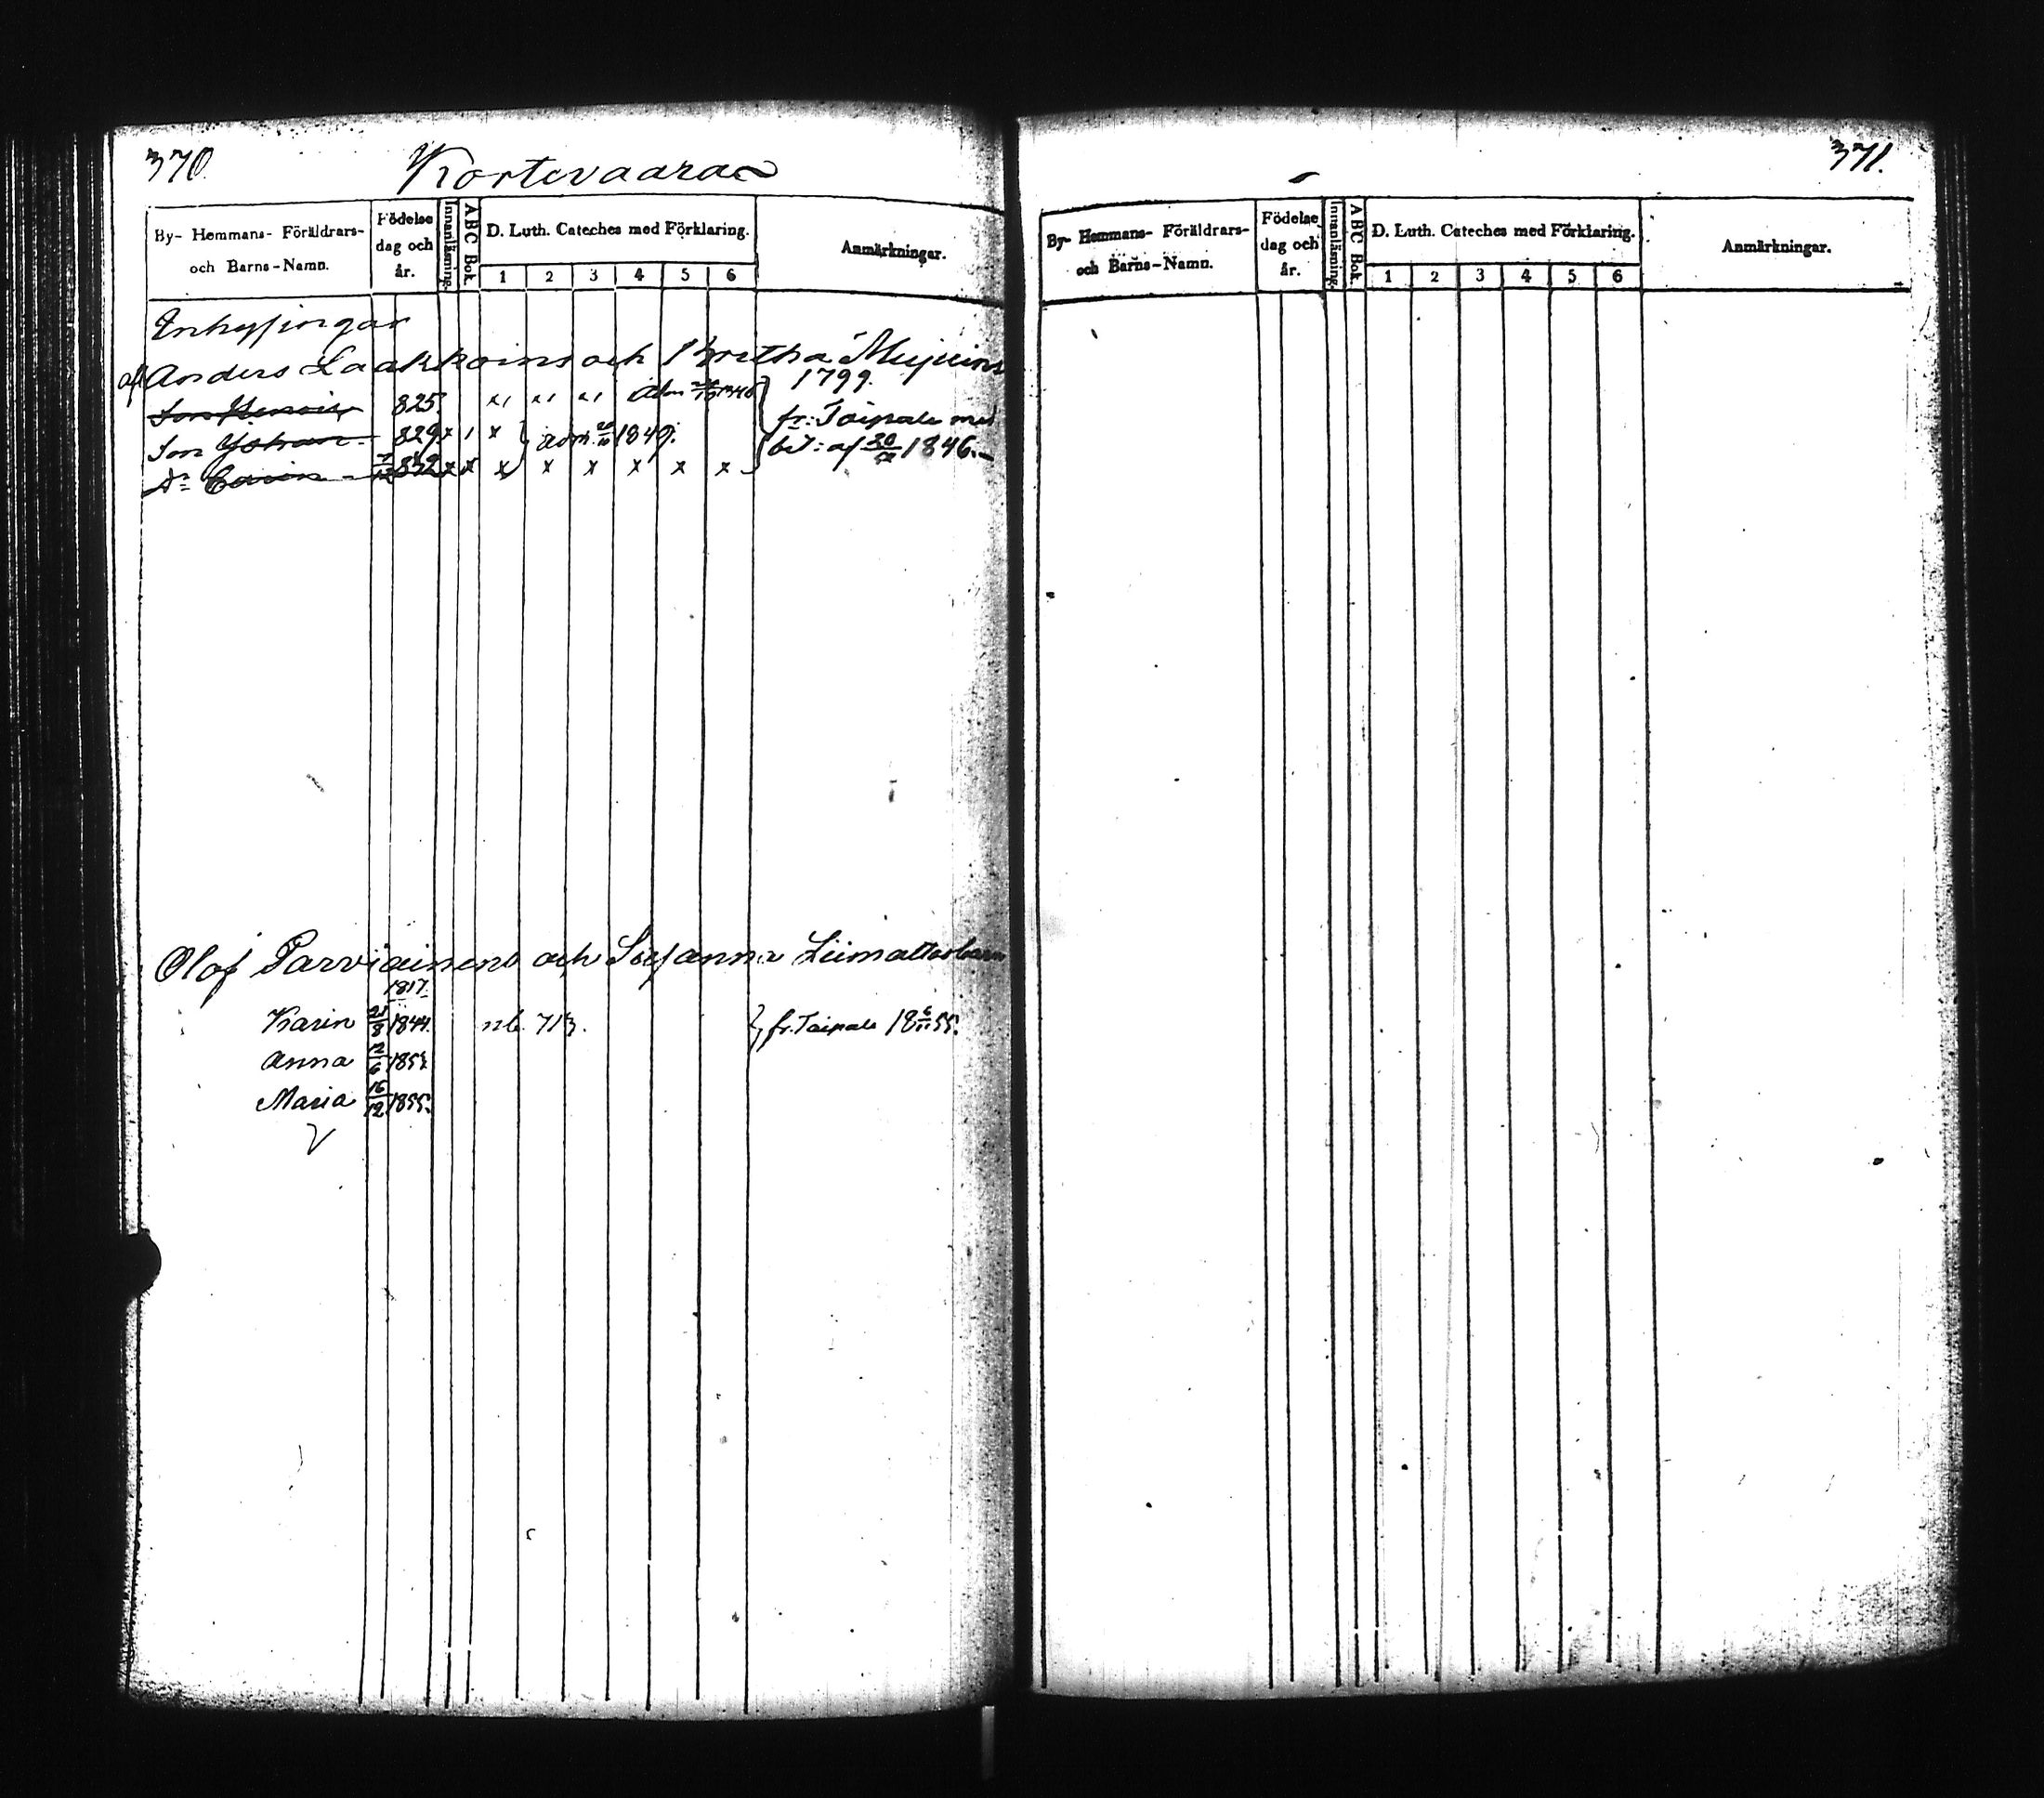 370.
Kortevaara
By- Hemmans- Föräldrars- och Barns-Namn.
Födelse dag och år.
Innanläsning.
ABC Bok.
D. Luth. Cateches med Förklaring.
1 2 3 4 5 6
Anmärkningar.
Inhysingar
Anders Laakkoins och Bretha
1799.
825.
Son Johan 829 x 1 x adm. 1849.
fr. Taipale med
bet: af 1846.
Dr Carin x x x x x x x x
Olof Parviainens och Susanna Liimattas barn
1817.
Karin 1844. nb. 713. fr. Taipale 18 6/11 55.
Anna 12/6
Maria 16/12 1855.
371.
By- Hemmans- Föräldrars- och Barns-Namn.
Födelse dag och år.
Innanläsning.
ABC Bok.
D. Luth. Cateches med Förklaring.
1 2 3 4 5 6
Anmärkningar.